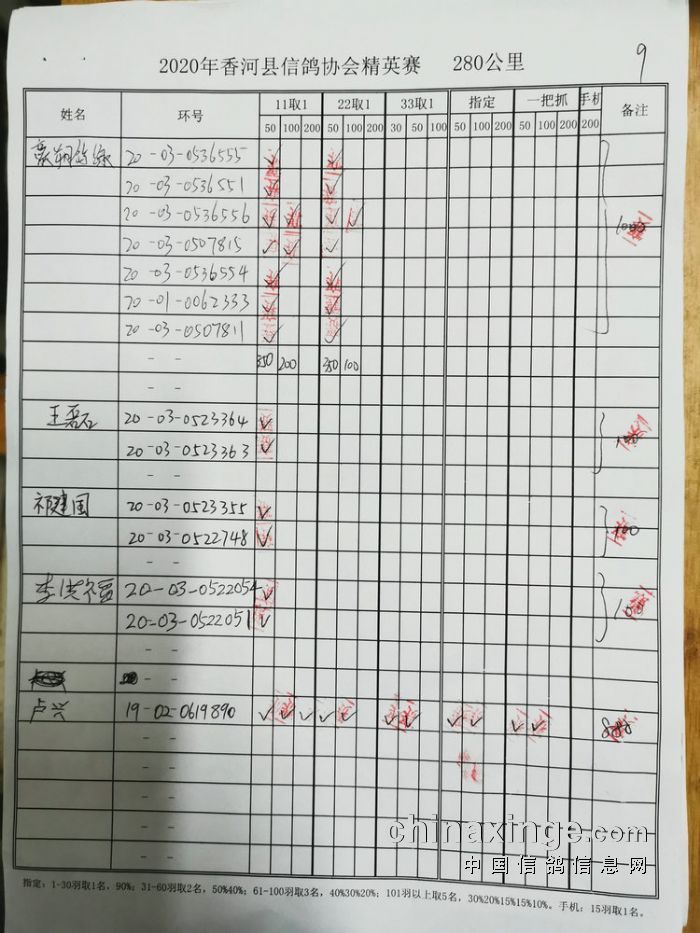 2020年香河县信鸽协会精英赛 280公里 9
姓名 环号 11取1 22取1 33取1 指定 一把抓 手机 备注
50 100 200 50 100 200 30 50 100 50 100 200 50 100 200 200
20-03-0536555
20-03-0536551
20-03-0536556 1000
20-03-0507815
20-03-0536554
20-01-0062333
20-03-0507811
- - 350 200 350 100
- -
王磊石 20-03-0523364
20-03-0523363
- -
祁建国 20-03-0523355
20-03-0522748 100
- -
20-03-0522054
20-03-0522051
- -
- -
卢兴 19-02-0619890
- -
- -
- -
- -
- -
chinaxinge.com
中国信鸽信息网
指定：1-30羽取1名，90%；31-60羽取2名，50%40%；61-100羽取3名，40%30%20%；101羽以上取5名，30%20%15%15%10%。手机：15羽取1名。